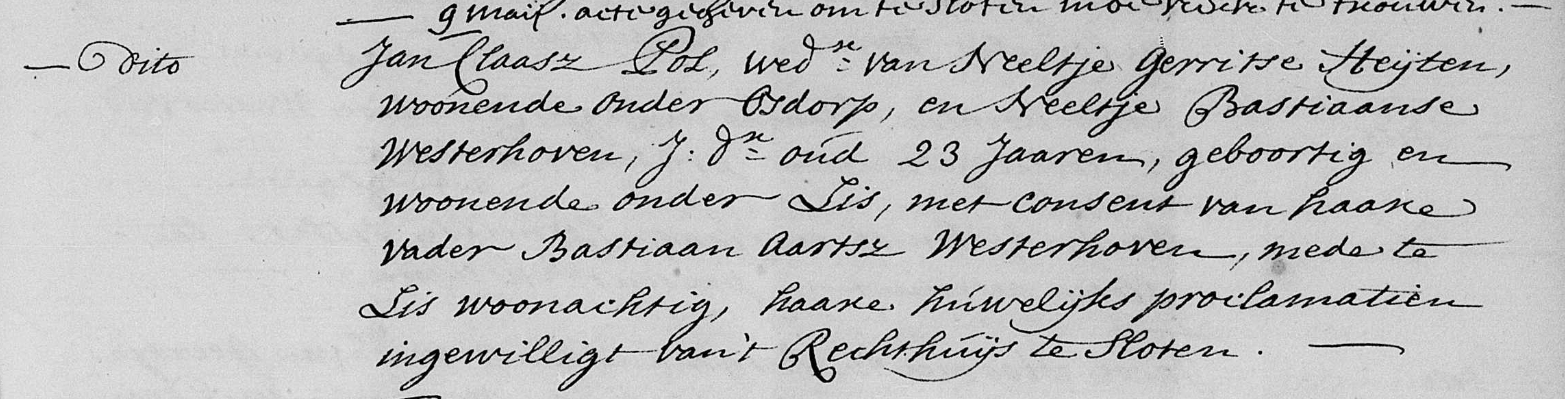 — 9 Maij. acte gegeven om te Sloten in de kerk te trouwen. —
— Dito
Jan Claasz Pol, wed.re van Neeltje Gerritse Heijten,
woonende onder Osdorp, en Neeltje Bastiaanse
Westerhoven, J: d.re oud 23 Jaaren, geboortig en
woonende onder Lis, met consent van haare
vader Bastiaan Aartsz Westerhoven, mede te
Lis woonachtig, haare huwelijks proclamatien
ingewilligt van't Rechthuijs te Sloten. —